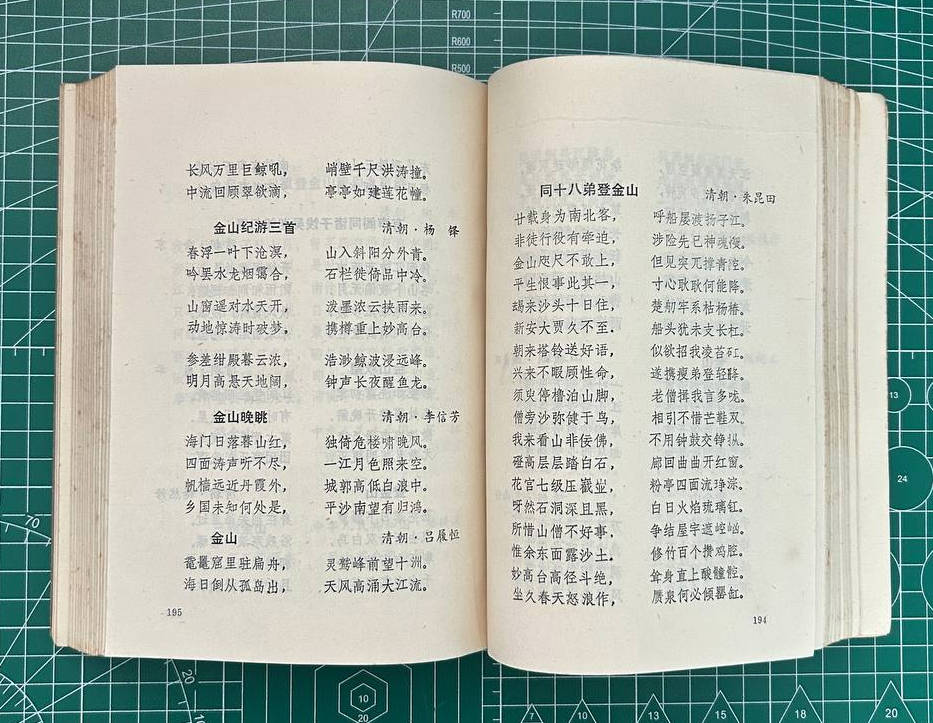 同十八弟登金山 清朝·朱昆田
廿载身为南北客, 呼船屡渡扬子江。
非徒行役有牵迫, 涉险先已神魂
金山咫尺不敢上, 但见突兀撑青
平生恨事此其一, 寸心耿耿何能降。
朅来沙头十日住, 楚舠牢系枯杨椿。
新安大贾久不至. 船头犹未支长杠。
朝来塔铃送好语, 似欲招我凌苔矼。
兴来不暇顾性命, 遂携瘦弟登轻
须臾停橹泊山脚, 老僧揖我言多咙。
僧旁沙弥健于鸟, 相引不惜芒鞋双。
我来看山非佞佛, 不用钟鼓交铮
磴高层层踏白石, 廊回曲曲开红窗。
花宫七级压嶻嶪, 粉亭四面流琤淙。
呀然石洞深且黑, 白日火焰琉璃缸。
所惜山僧不好事, 争结屋宇遮崆
惟余东面露沙土, 修竹百个攒鸡腔。
妙高台高径斗绝, 耸身直上酸髓
坐久春天怒浪作, 赝泉何必倾罂缸。
194
长风万里巨鲸吼, 峭壁千尺洪涛撞。
中流回顾翠欲滴, 亭亭如建莲花幢。
金山纪游三首 清朝·杨 铎
春浮一叶下沧溟, 山入斜阳分外青。
吟罢水龙烟霭合, 石栏徙倚品中泠。
山窗遥对水天开, 泼墨浓云挟雨来。
动地惊涛时破梦, 携樽重上妙高台。
参差绀殿暮云浓, 浩渺鲸波浸远峰。
明月高悬天地阔, 钟声长夜醒鱼龙。
金山晚眺 清朝·李信芳
海门日落暮山红, 独倚危楼啸晚风。
四面涛声听不尽, 一江月色照来空。
帆樯远近丹霞外, 城郭高低白浪中。
乡国未知何处是, 平沙南望有归鸿。
金山 清朝·吕履恒
鼋鼍窟里驻扁舟, 灵鹫峰前望十洲。
海日倒从孤岛出, 天风高涌大江流。
195
R700
R600
R500
70
20
10
10
20
7
10
13
15
18
20
13
24